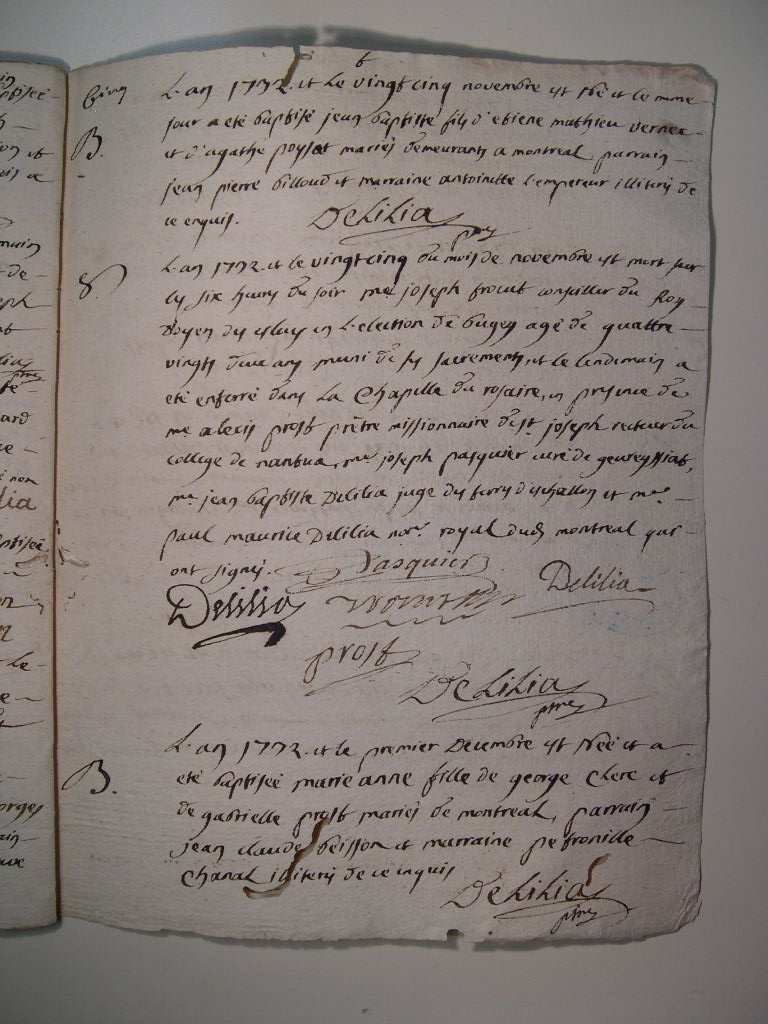 L'an 1732 et le vingtcinq novembre est né et le meme
B. jour a eté baptisé jean baptiste fils d'etiene mathieu vernee
et d'agathe poysat mariés demeurants a montreal parrain
jean pierre billoud et marraine antoinette l'empereur illiterés de
ce enquis. Delilia ptre
S. L'an 1732 et le vingtcinq du mois de novembre est mort sur
les six heures du soir me joseph conseiller du Roy
doyen des eslus en l'election de bugey agé de quattre
vingts deux ans muni de ses sacrements et le lendemain a
eté enterré dans la chapelle du rosaire, en presence de
me alexis prost prêtre missionnaire de st. joseph recteur du
college de nantua, me joseph pasquier curé de geureyssiat,
me jean baptiste Delilia juge des terres d'eschallon et me.
paul maurice Delilia nore. royal dud. montreal qui
ont signés. Pasquier
Delilia Delilia
prost
Delilia
ptre
L'an 1732 et le premier decembre est née et a
B. eté baptisée marie anne fille de george clerc et
de gabrielle prost mariés de montreal, parrain
jean claude beisson et marraine petronille
chanal illiterés de ce enquis
Delilia
ptre